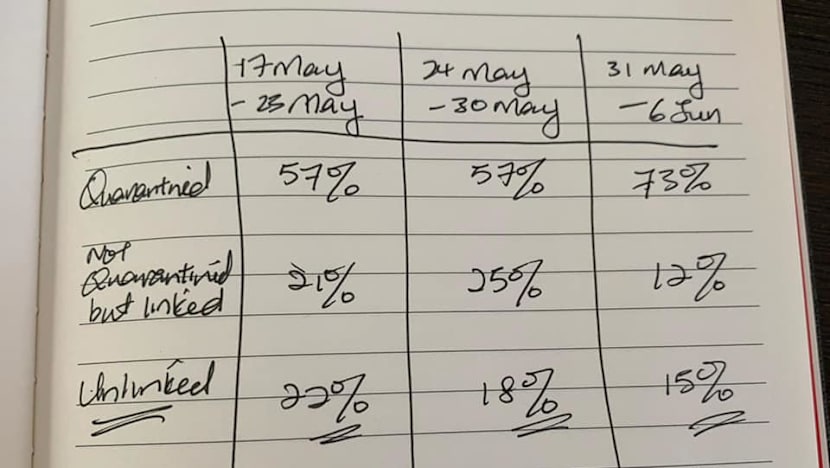 17 May 24 May 31 May
- 23 May - 30 May - 6 Jun
Quarantined 57% 57% 73%
Not
Quarantined 21% 25% 12%
but linked
Unlinked 22% 18% 15%